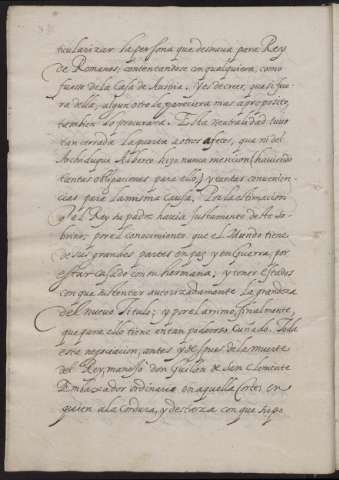 ticularizar la persona que deseava para Rey
de Romanos; contentandose con qualquiera, como
fuesse de la Casa de Austria. Y es de creer, que si fue
ra della, algun otro la pareciera mas aproposito,
tambien lo procurara. Esta neutralidad tuvo
tan cerrada la puerta a otros afetos, que ni del
Archiduque Alberto hizo nunca mencion (haviendo
tantas obligaciones para ello,) y tantas convenien-
cias para la misma causa. Por la estimacion
q el Rey su padre havia justamente de este So-
brino; por el conocimiento que el Mundo tiene
de sus grandes partes en paz, y en Guerra; por
estar casado con su hermana; y tener Estados
con que sustentar autorizadamente la grandeza
del nuevo titulo; y por el animo, finalmente,
que para ello tiene en tan poderoso Cuñado. Toda
esta negociacion, antes, y despues de la muerte
del Rey, manejó don Guillen de San Clemente
Embaxador ordinario en aquella Corte; en
quien a la cordura, y destreza con que hizo